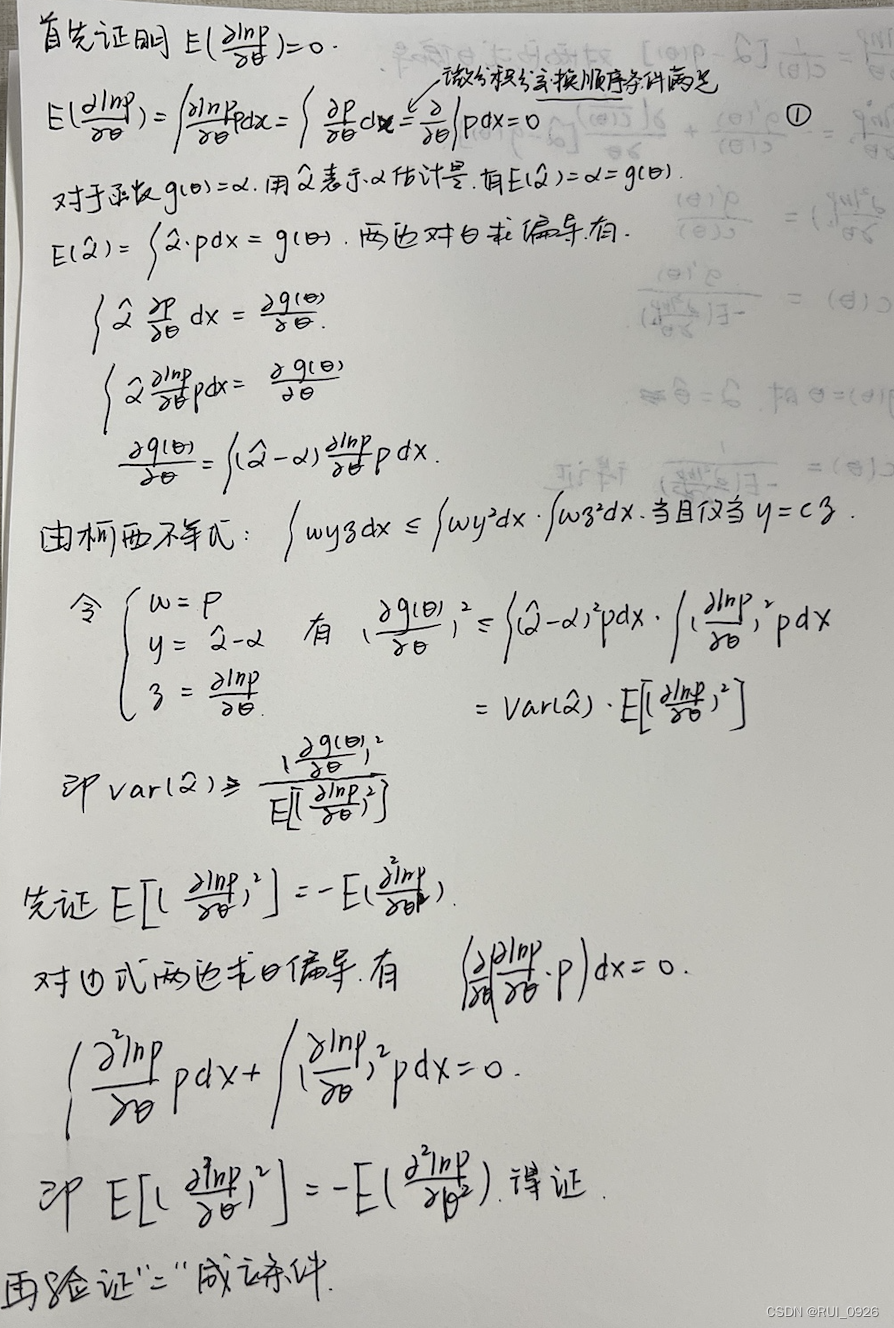 首先证明 E(∂lnp/∂θ)=0.
微分积分交换顺序条件满足
E(∂lnp/∂θ)=∫∂lnp/∂θ pdx=∫ ∂p/∂θ dx=∂/∂θ∫pdx=0 ①
对于函数g(θ)=α.用α̂表示α估计量.有E(α̂)=α=g(θ).
E(α̂)=∫α̂·pdx=g(θ).两边对θ求偏导.有.
∫α̂ ∂p/∂θ dx=∂g(θ)/∂θ.
∫α̂ ∂lnp/∂θ pdx=∂g(θ)/∂θ
∂g(θ)/∂θ=∫(α̂-α)∂lnp/∂θ p dx.
由柯西不等式:∫wyzdx≤∫wy²dx·∫wz²dx.当且仅当y=cz.
令 { w=p
y=α̂-α 有 (∂g(θ)/∂θ)²≤∫(α̂-α)²pdx·∫(∂lnp/∂θ)²pdx
z=∂lnp/∂θ. =Var(α̂)·E[(∂lnp/∂θ)²]
即var(α̂)≥(∂g(θ)/∂θ)²/E[(∂lnp/∂θ)²]
先证E[(∂lnp/∂θ)²]=-E(∂²lnp/∂θ²).
对①式两边求θ偏导.有 ∫(∂/∂θ ∂lnp/∂θ·p)dx=0.
∫∂²lnp/∂θ pdx+∫(∂lnp/∂θ)²pdx=0.
即 E[(∂lnp/∂θ)²]=-E(∂²lnp/∂θ²).得证.
再验证"="成立条件.
CSDN @RUI_0926